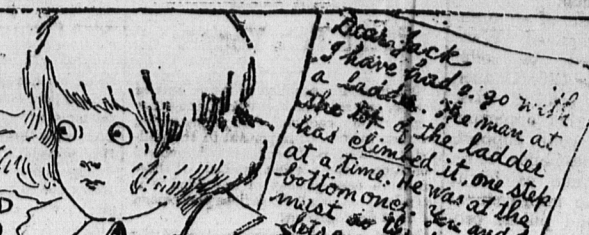 Dear Jack
I have had a go with
a ladder. The man at
the top of the ladder
has climbed it, one step
at a time. He was at the
bottom once. You and I
must do it.
D